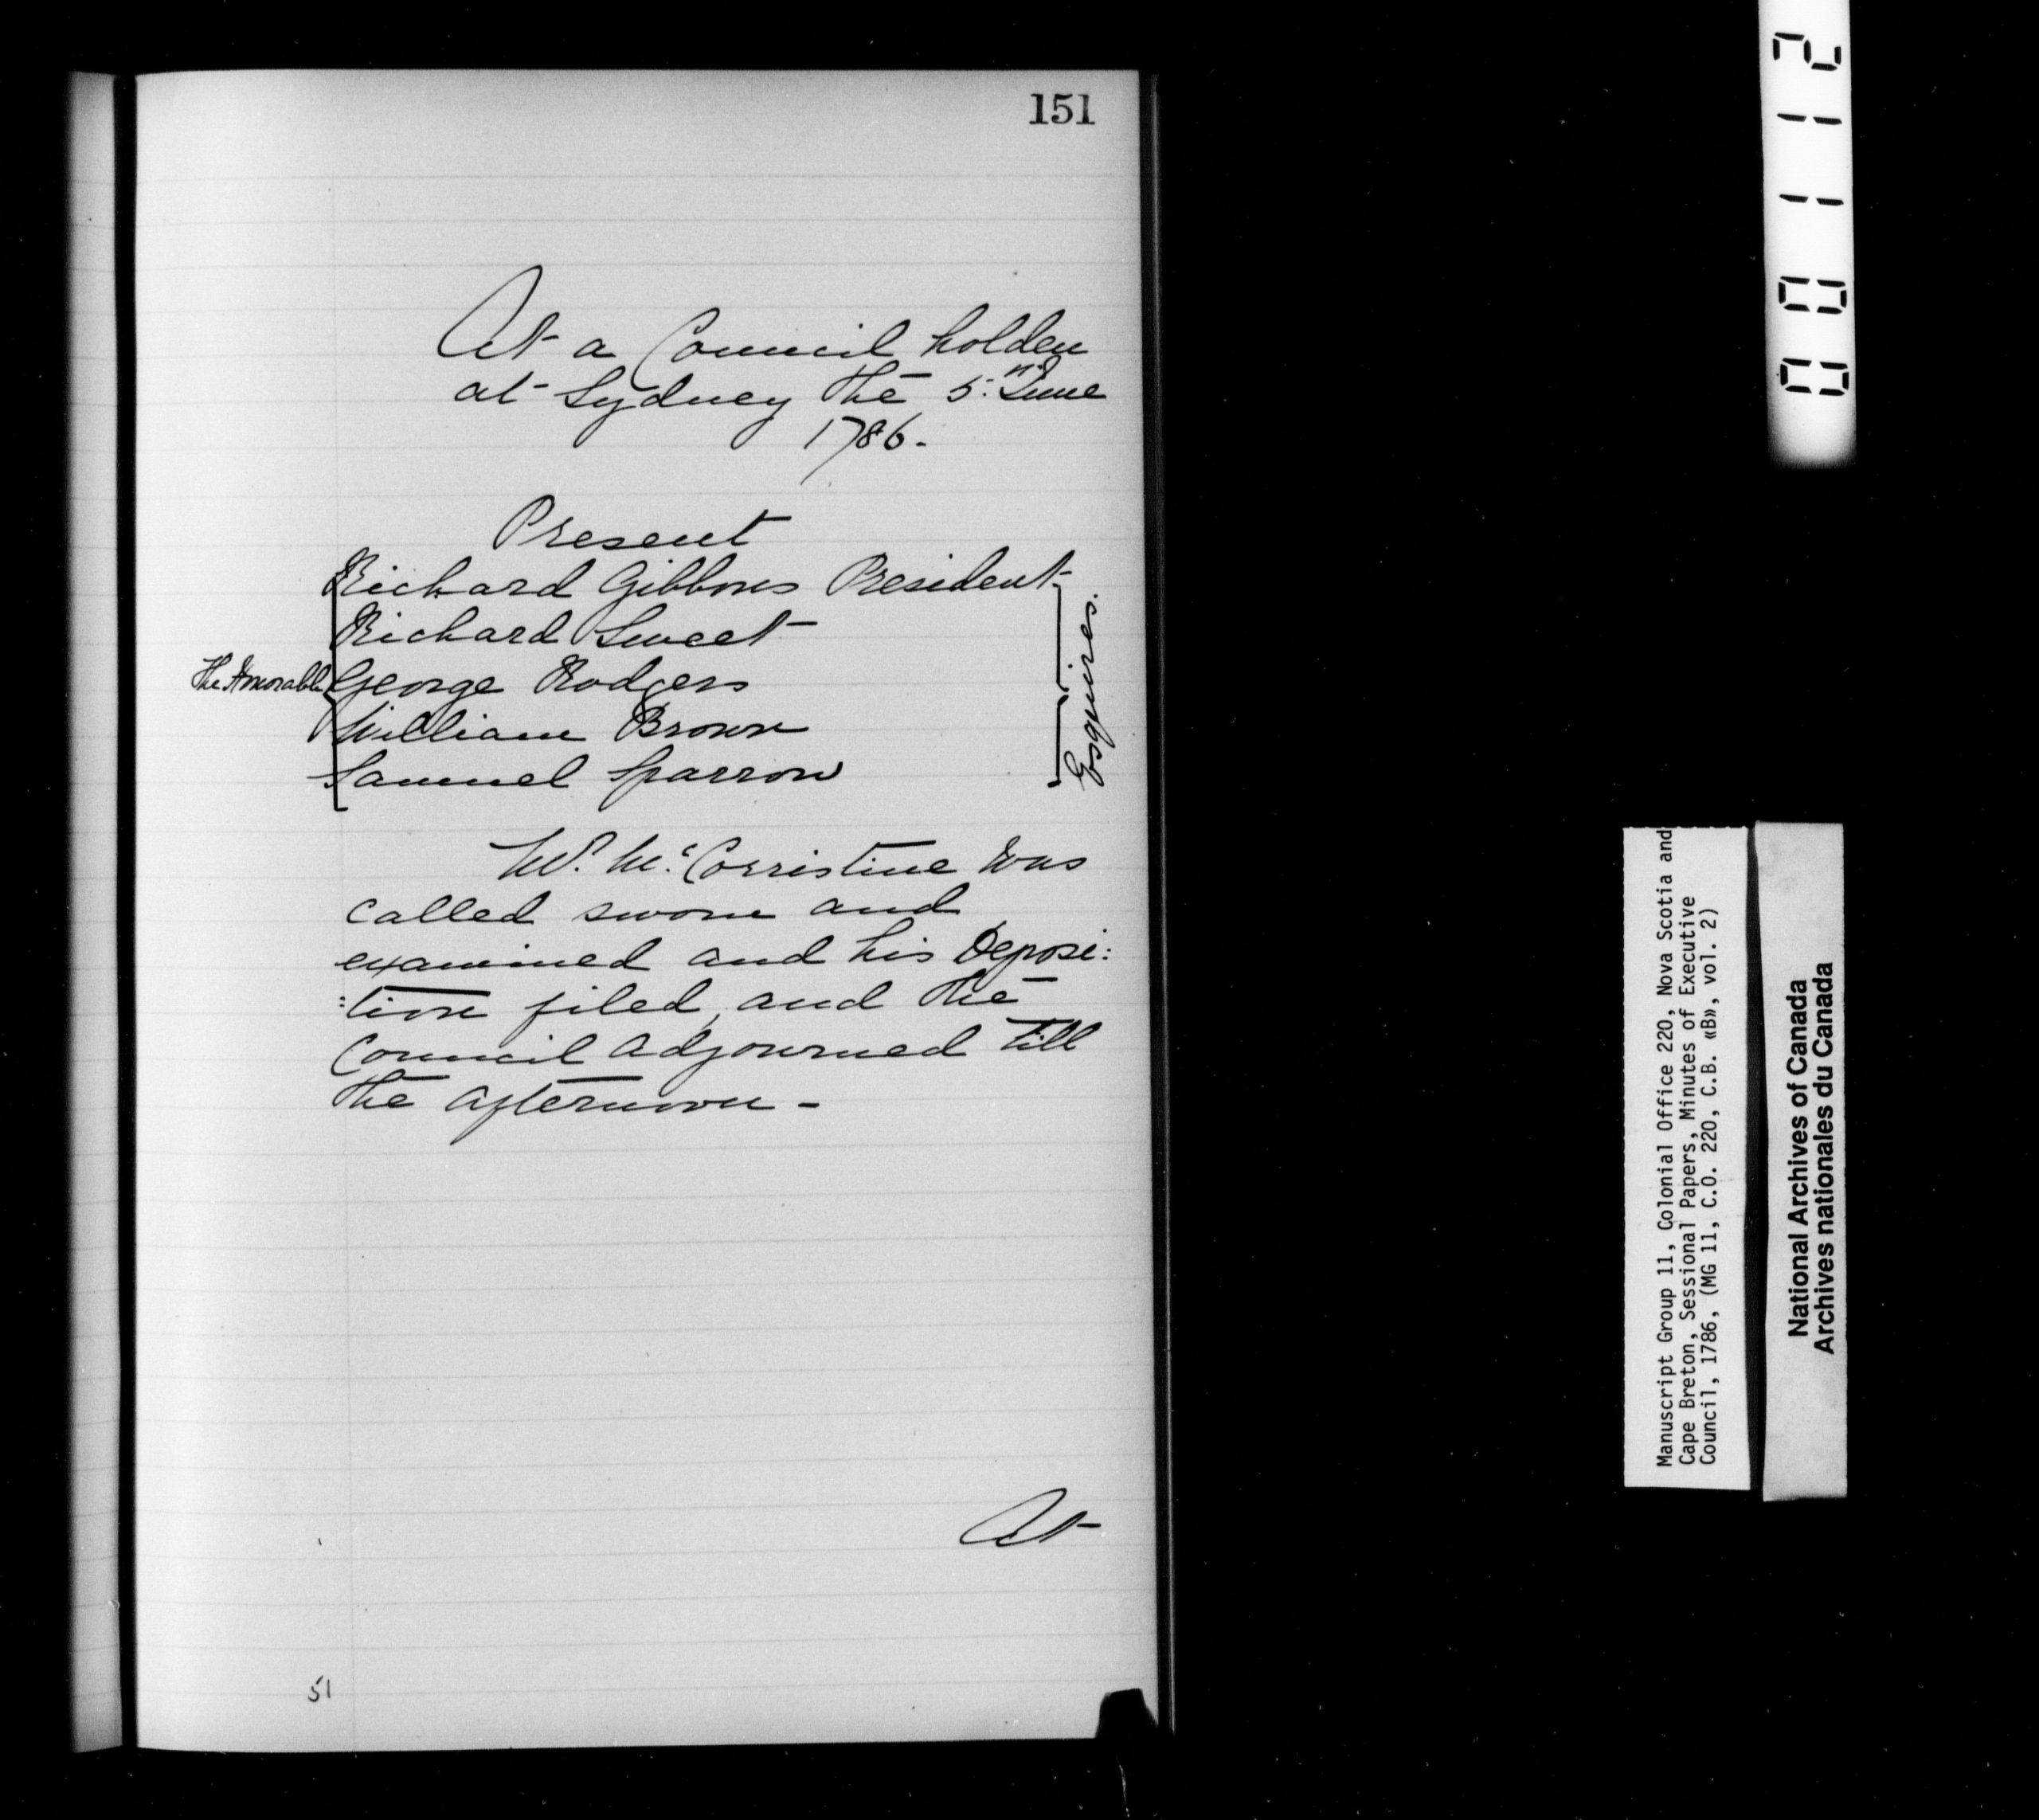 151
At a Council holden
at Sydney the 5.nd June
1786.
Present
Richard Gibbons President
Richard Sweet
The Honorable George Rodgers
William Brown
Samuel Sparrow
Esquires.
Wm. Mc. Corristine was
called sworn and
examined and his Deposi:
:tion filed, and the
Council adjourned till
the afternoon -
At
51
00112
Manuscript Group 11, Colonial Office 220, Nova Scotia and
Cape Breton, Sessional Papers, Minutes of Executive
Council, 1786, (MG 11, C.O. 220, C.B. «B», vol. 2)
National Archives of Canada
Archives nationales du Canada